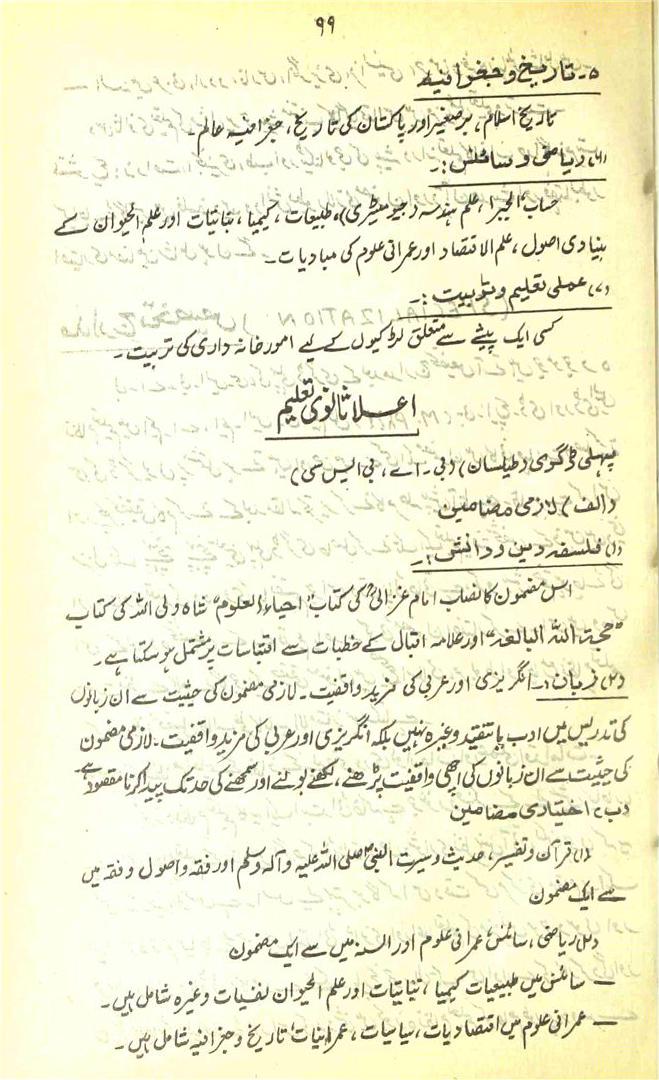 ۹۹
۵۔ تاریخ و جغرافیہ
تاریخ اسلام، برصغیر اور پاکستان کی تاریخ، جغرافیہ عالم۔
(۶) ریاضی و سائنس :۔
حساب الجبرا، علم ہندسہ (جیومیٹری)، طبیعات، کیمیا، نباتیات اور علم الحیوان کے
بنیادی اصول، علم الاقتصاد اور عمرانی علوم کی مبادیات۔
(۷) عملی تعلیم و تربیت :۔
کسی ایک پیشے سے متعلق لڑکیوں کے لیے امور خانہ داری کی تربیت۔
اعلا ثانوی تعلیم
پہلی ڈگری (طیلسان) (بی۔ اے، بی ایس سی)
(الف) لازمی مضامین
(۱) فلسفہ دین و دانش :۔
اس مضمون کا نصاب امام غزالیؒ کی کتاب "احیاء العلوم" شاہ ولی اللہ کی کتاب
"حجت اللہ البالغہ" اور علامہ اقبال کے خطبات سے اقتباسات پر مشتمل ہو سکتا ہے۔
(۲) زبان :۔ انگریزی اور عربی کی مزید واقفیت۔ لازمی مضمون کی حیثیت سے ان زبانوں
کی تدریس میں ادب یا تنقید وغیرہ نہیں بلکہ انگریزی اور عربی کی مزید واقفیت۔ لازمی مضمون
کی حیثیت سے ان زبانوں کی اچھی واقفیت پڑھنے، لکھنے بولنے اور سمجھنے کی حد تک پیدا کرنا مقصود ہے۔
(ب) اختیاری مضامین
(۱) قرآن و تفسیر، حدیث و سیرت النبیؐ صلی اللہ علیہ وآلہ وسلم اور فقہ و اصول و فقہ میں
سے ایک مضمون
(۲) ریاضی، سائنس، عمرانی علوم اور السنہ میں سے ایک مضمون
— سائنس میں طبیعیات کیمیا، نباتیات اور علم الحیوان نفسیات وغیرہ شامل ہیں۔
— عمرانی علوم میں اقتصادیات، سیاسیات، عمرانیات، تاریخ و جغرافیہ شامل ہیں۔